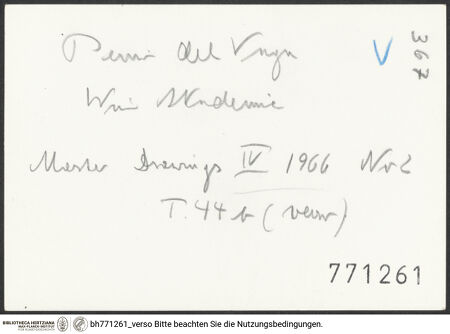 Perin del Vaga
V
367
Wien Akademie
Master Drawings IV 1966 Nr 2
T. 44 b (verso)
771261
BIBLIOTHECA HERTZIANA
MAX-PLANCK-INSTITUT
FÜR KUNSTGESCHICHTE
bh771261_verso Bitte beachten Sie die Nutzungsbedingungen.